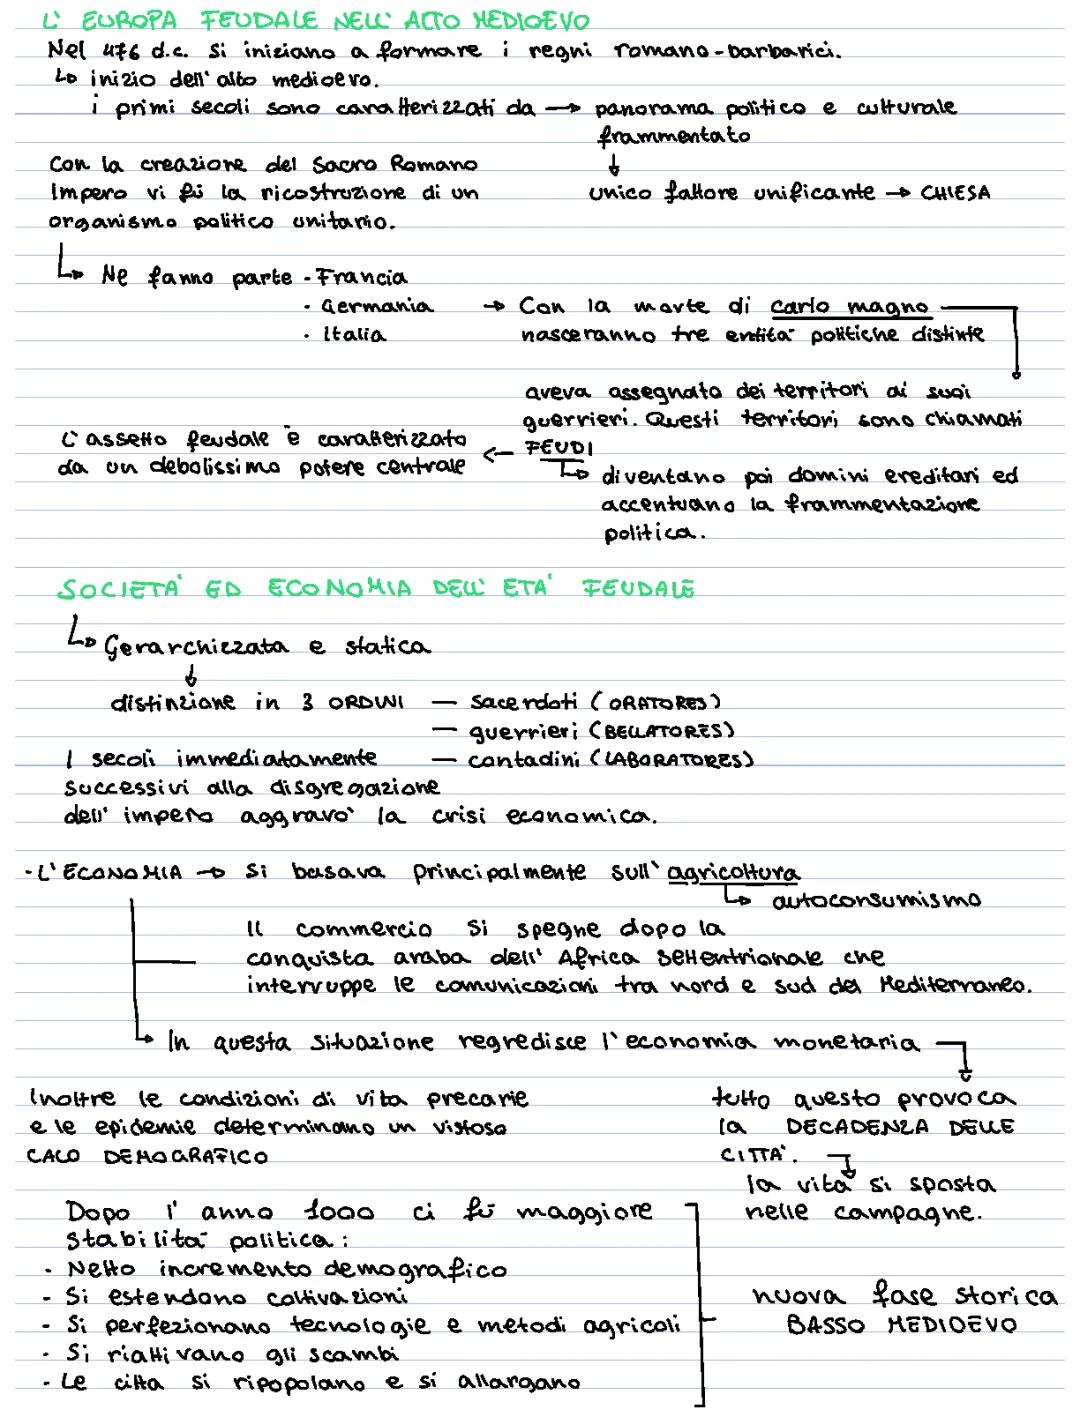 L' EUROPA FEUDALE NELL' ALTO MEDIOEVO
Nel 476 d.c. si iniziano a formare i regni romano-barbarici.
↳ inizio dell'alto medioevo.
i primi secoli sono caratterizzati da → panorama politico e culturale
frammentato
↓
unico fattore unificante → CHIESA
Con la creazione del Sacro Romano
Impero vi fù la ricostruzione di un
organismo politico unitario.
↳ Ne fanno parte - Francia
- Germania
- Italia
→ Con la morte di carlo magno
nasceranno tre entità politiche distinte
aveva assegnato dei territori ai suoi
guerrieri. Questi territori sono chiamati
FEUDI
↳ diventano poi domini ereditari ed
accentuano la frammentazione
politica.
L'assetto feudale è caratterizzato ←
da un debolissimo potere centrale
SOCIETA' ED ECONOMIA DELL' ETA' FEUDALE
↳ Gerarchizzata e statica
↓
distinzione in 3 ORDINI — sacerdoti (ORATORES)
— guerrieri (BELLATORES)
— contadini (LABORATORES)
I secoli immediatamente
successivi alla disgregazione
dell'impero aggravò la crisi economica.
- L'ECONOMIA → si basava principalmente sull'agricoltura
↳ autoconsumismo
Il commercio si spegne dopo la
conquista araba dell'Africa settentrionale che
interruppe le comunicazioni tra nord e sud del Mediterraneo.
↳ In questa situazione regredisce l'economia monetaria
tutto questo provoca
la DECADENZA DELLE
CITTA'.
la vita si sposta
nelle campagne.
Inoltre le condizioni di vita precarie
e le epidemie determinano un vistoso
CALO DEMOGRAFICO
Dopo l'anno 1000 ci fù maggiore
stabilità politica:
- Netto incremento demografico
- Si estendono coltivazioni
- Si perfezionano tecnologie e metodi agricoli
- Si riattivano gli scambi
- Le citta si ripopolano e si allargano
nuova fase storica
BASSO MEDIOEVO